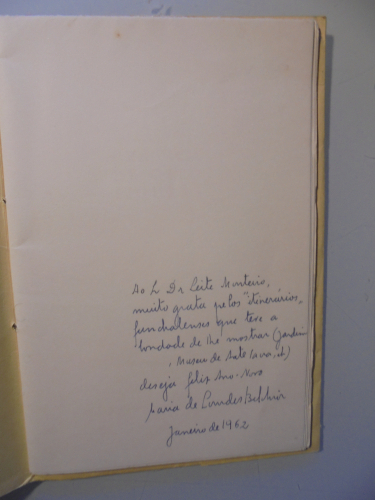 Ao Dr Leite Monteiro,
muito grata pelos "itinerários"
funchalenses que teve a
bondade de lhe mostrar (Jardim
, Museu de Arte Sacra, etc)
deseja feliz Ano-Novo
Maria de Lourdes Belchior
Janeiro de 1962